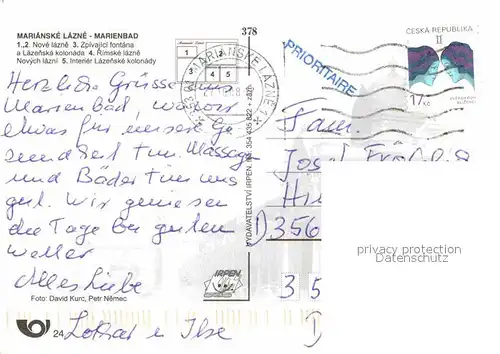 MARIÁNSKÉ LÁZNĚ - MARIENBAD
1.,2. Nové lázně 3. Zpívající fontána
a Lázeňská kolonáda 4. Římské lázně
Nových lázní 5. Interiér Lázeňské kolonády
378
1 2
3 4 5
MARIÁNSKÉ LÁZNĚ 1
PRIORITAIRE
ČESKÁ REPUBLIKA
II
17 Kč
Herzliche Grüsse aus
Marienbad, wo wir
etwas für unsere Ge
sundheit tun. Massagen
und Bäder tun uns
gut. Wir geniesen
die Tage bei guten
Wetter
Alles Liebe
Lothar u Ilse
Fam.
Josef
D 356
35
D
privacy protection
Datenschutz
VYDAVATELSTVÍ IRPEN, tel. 354 435 622
IRPEN
Foto: David Kurc, Petr Němec
24